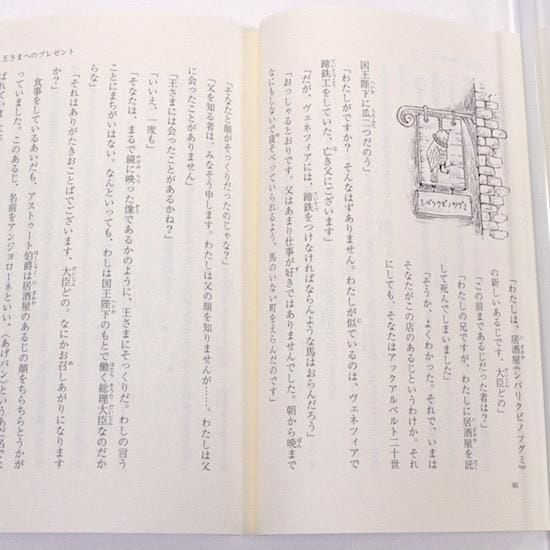 「わたしは、居酒屋《シバリクビノツグミ》
の新しいあるじです、大臣どの」
「この前まであるじだった者は？」
「わたしの兄ですが、わたしに居酒屋を託
して死んでしまいました」
「そうか、よくわかった。それで、いまは
そなたがこの店のあるじというわけか。それ
にしても、そなたはアックアルベルト二十世
国王陛下に瓜二つだのう」
「わたしがですか？　そんなはずありません。わたしが似ているのは、ヴェネツィアで
蹄鉄工をしていた、亡き父にございます」
「だが、ヴェネツィアには、蹄鉄をつけなければならんような馬はおらんだろう」
「おっしゃるとおりです。父はあまり仕事が好きではありませんでした。朝から晩まで
なにもしないで寝そべっていられるよう、馬のいない町をえらんだのです」
シバリクビノツグミ
46
王さまへのプレゼント
「そなたと顔がそっくりだったのじゃな？」
「父を知る者は、みなそう申します。わたしは父の顔を知りませんが……。わたしは父
には会ったことがありません」
「王さまには会ったことがあるかね？」
「いいえ、一度も」
「そなたは、まるで鏡に映った像であるかのように、王さまにそっくりだ。わしの言う
ことにまちがいはない。なんといっても、わしは国王陛下のもとで働く総理大臣なのだか
らな」
「それはありがたきおことばでございます、大臣どの。なにかお召しあがりになります
か？」
食事をしているあいだも、アストゥート伯爵は居酒屋のあるじの顔をちらちらとうかが
っていました。このあるじ、名前をアンジョローネといい、〈あげパン〉というあだ名で